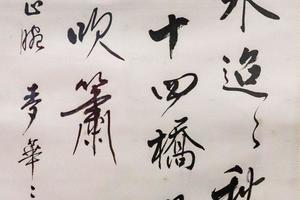 水迢〻秋
十四橋
吹簫
華